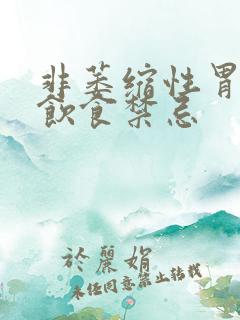 非萎缩性胃
飲食禁忌
於麗娟
未经同意禁止转载